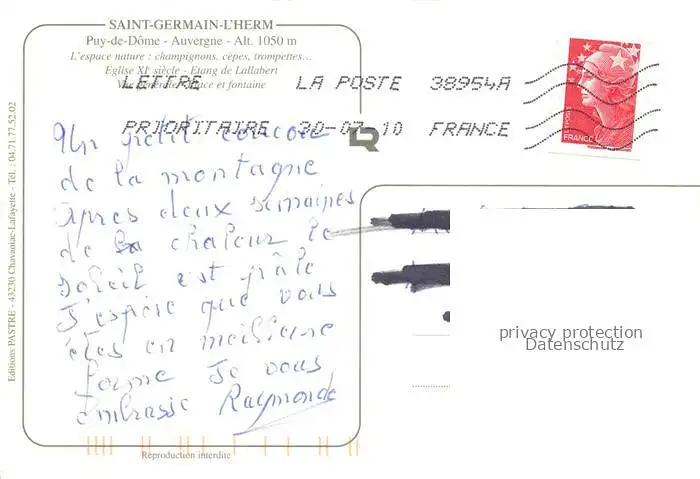 SAINT-GERMAIN-L'HERM
Puy-de-Dôme - Auvergne - Alt. 1050 m
L'espace nature : champignons, cèpes, trompettes...
Eglise XIe siècle - Etang de Lallabert
Vue générale - Place et fontaine
LETTRE LA POSTE 38954A
PRIORITAIRE 30-07-10 FRANCE
FRANCE
Un petit coucou
de la montagne
Après deux semaines
de chaleur le
soleil est pâle
J'espère que vous
êtes en meilleure
forme Je vous
embrasse Raymonde
Editions PASTRE - 43230 Chavaniac-Lafayette - Tél. : 04.71.77.52.02
privacy protection
Datenschutz
Reproduction interdite